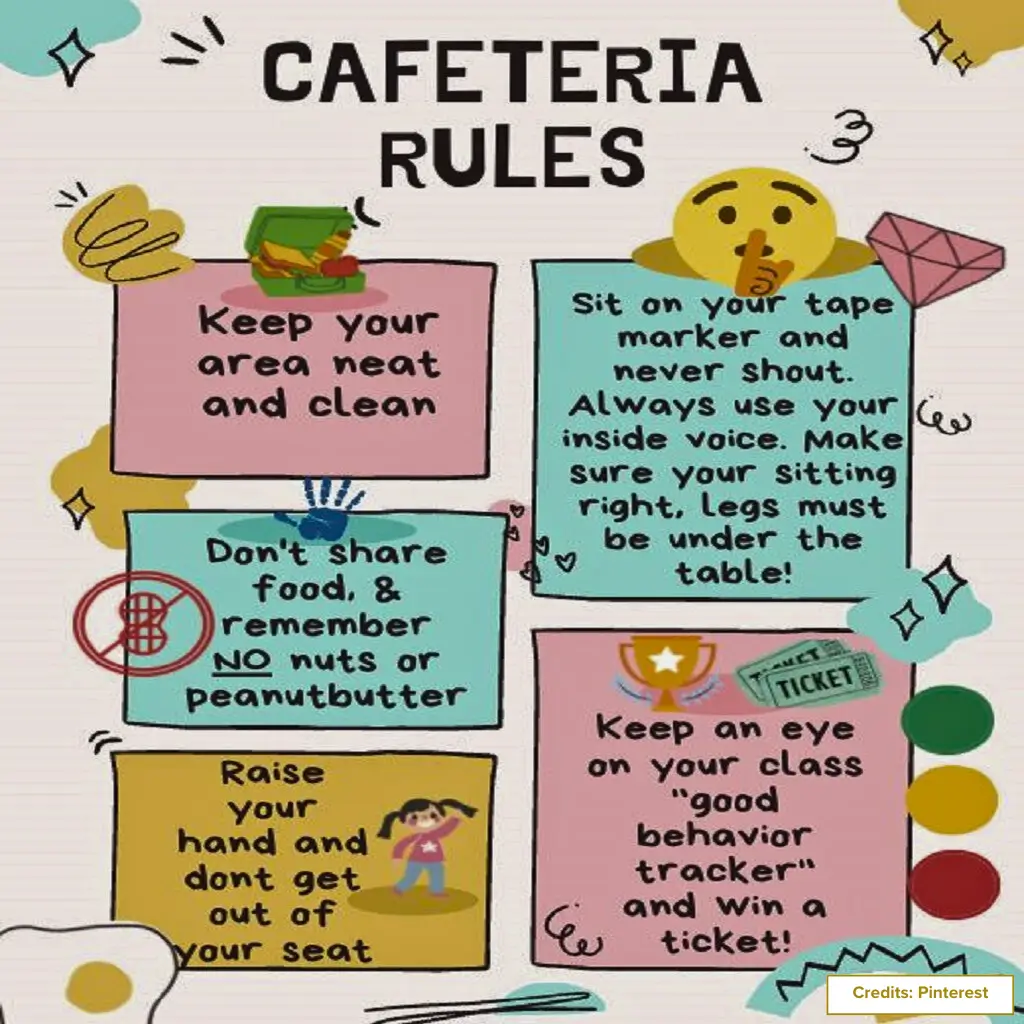 CAFETERIA
RULES
Keep your
area neat
and clean
Sit on your tape
marker and
never shout.
Always use your
inside voice. Make
sure your sitting
right, legs must
be under the
table!
Don't share
food, &
remember
NO nuts or
peanutbutter
TICKET
TICKET
Keep an eye
on your class
"good
behavior
tracker"
and win a
ticket!
Raise
your
hand and
dont get
out of
your seat
Credits: Pinterest